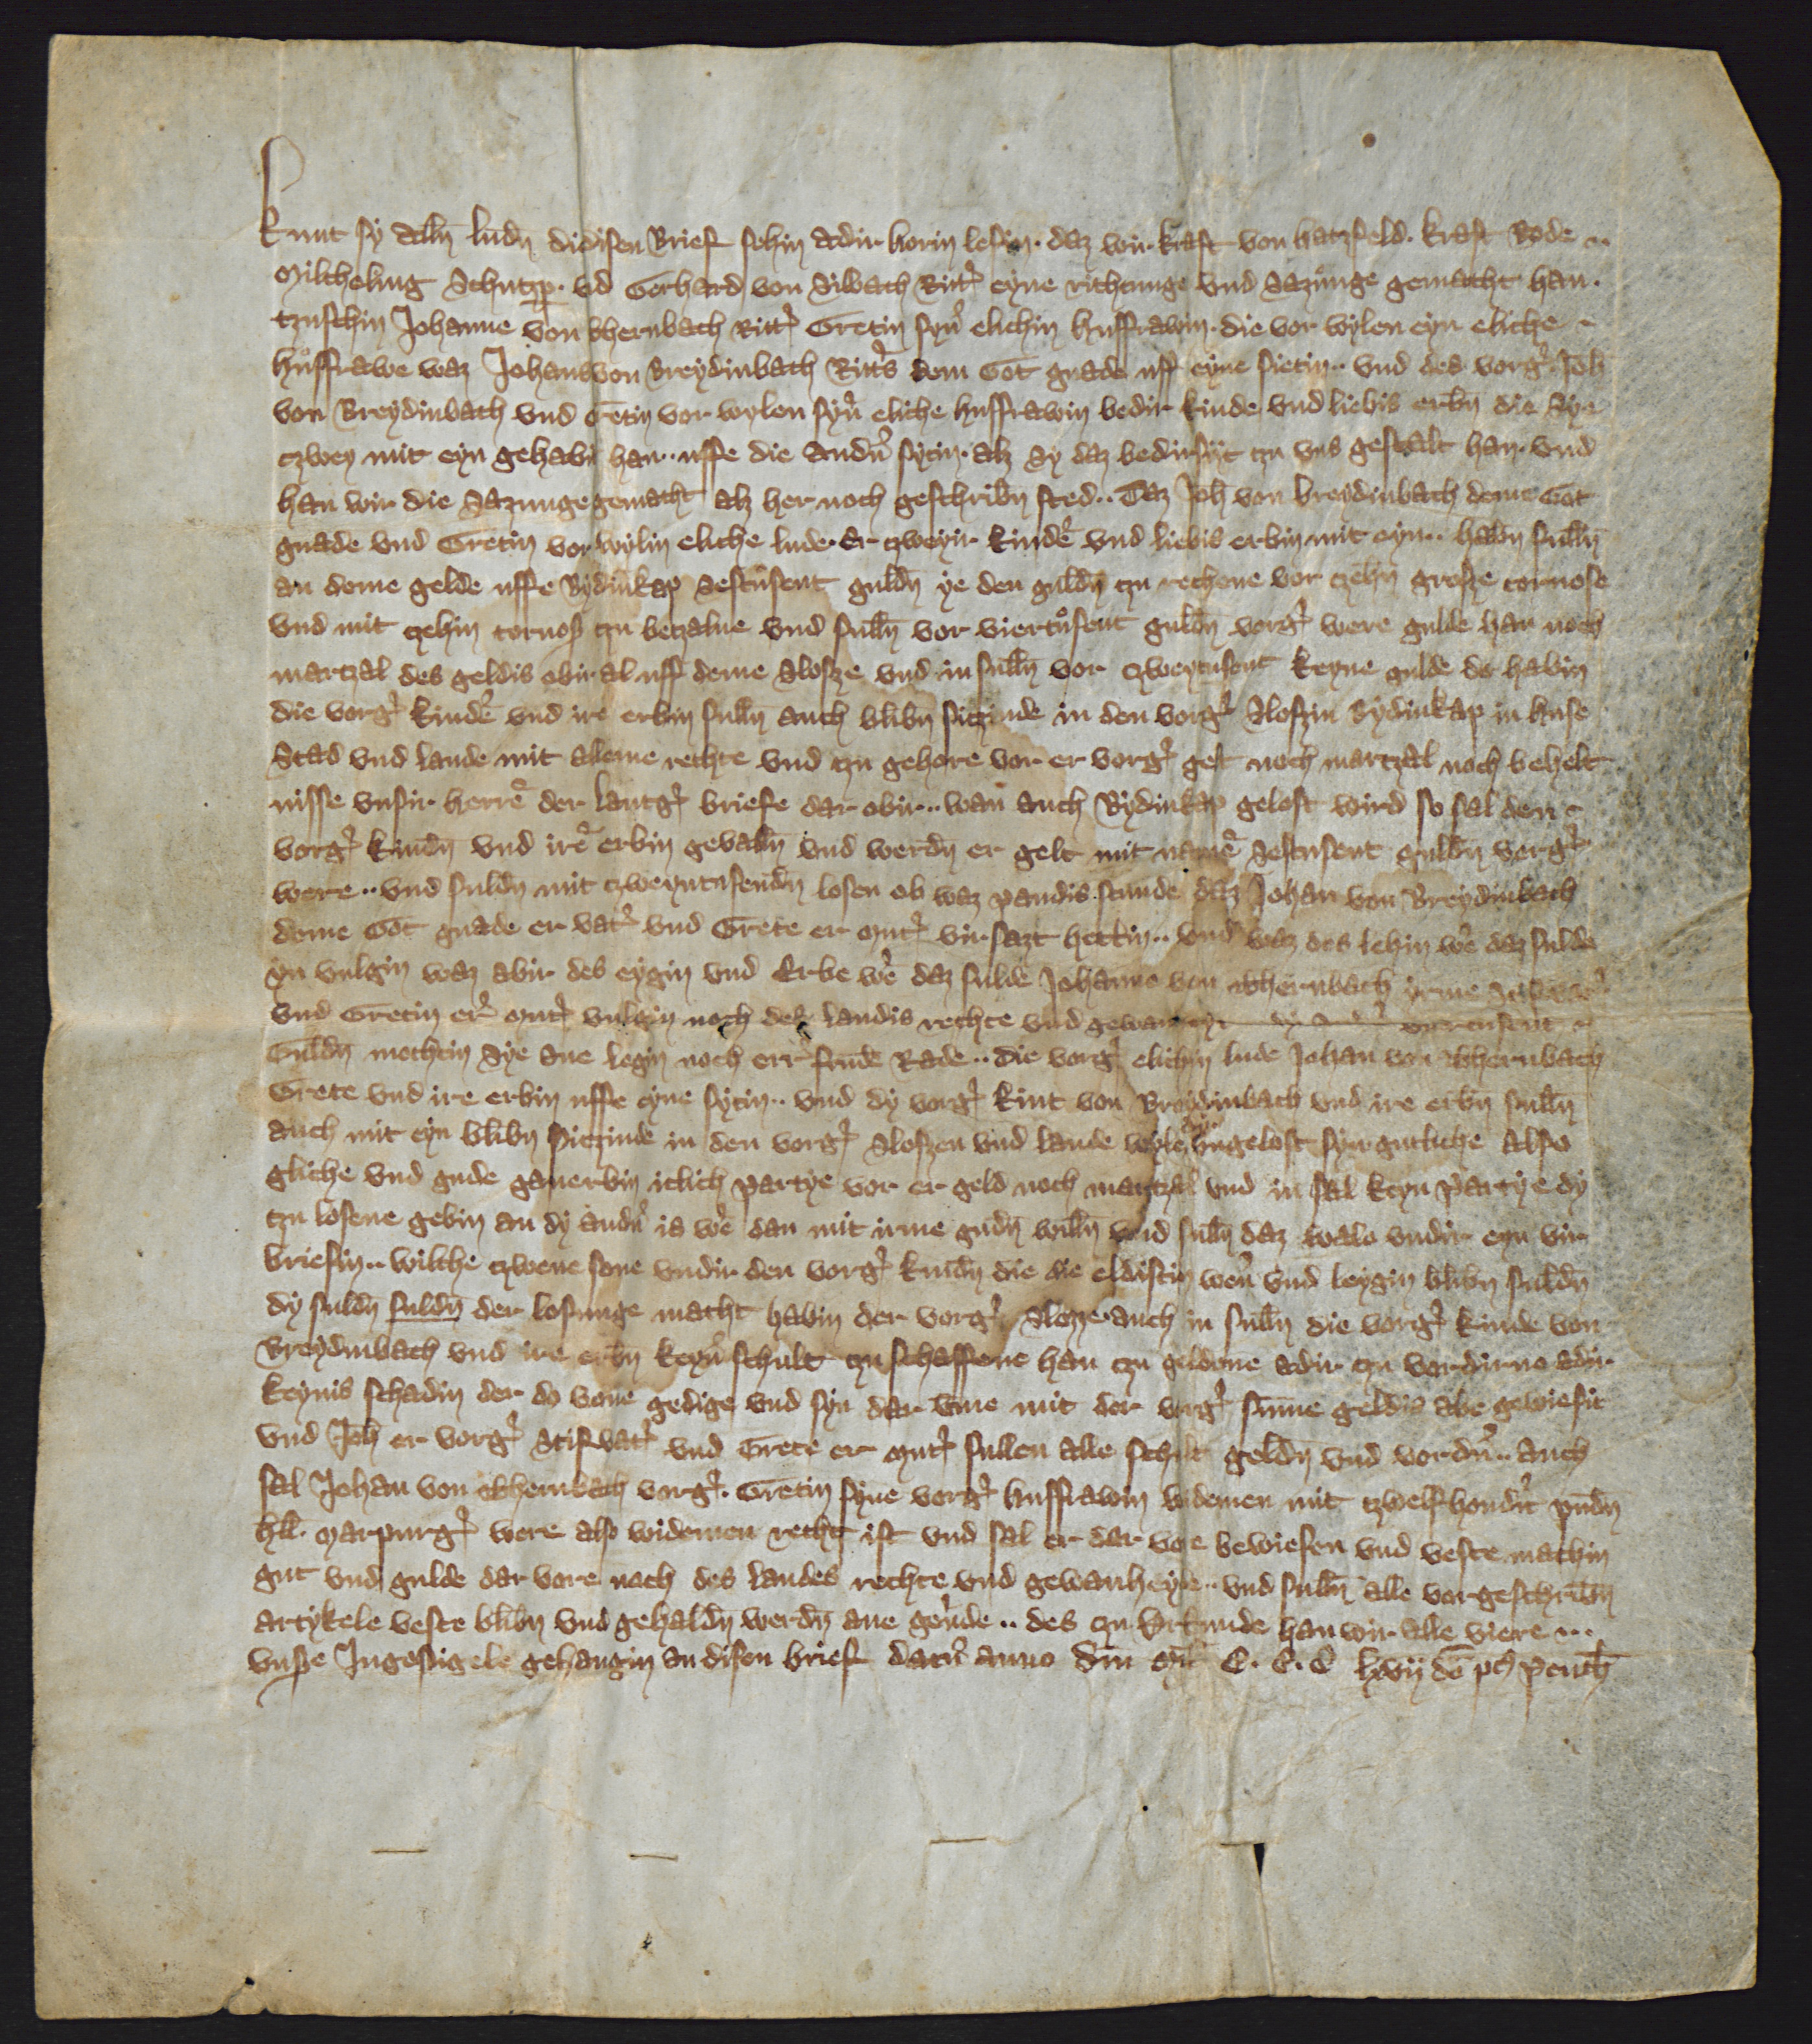 Kunt sy alln̄ ludn̄ di disen Brief sehin adir horin lesin · daz wir kraft von hatzfeld · kraft Rode ··
Milcheling Schutzp̱ · vnd Gerhard von Silbach Rittˀ eyne richtunge vnd Sazunge gemacht han ·
tzuschin Johanne von Ebernbach Rittˀ Gretin synˀ elichin husfrawin · die vor wylen eyn eliche
husfrawe waz Johans von Breydinbach Rittˀs dem Got gnade uff eyne sietin ·· vnd des vorgˀ Joh̄
von Breydinbach vnd Gretin vor wylen synˀ eliche husfrawin bedir kinde vnd liebis erbn̄ die Sye
czwey mit eyn gehabt han ·· uffe die andˀn sytin · alz Sy daz bedirsyt tzu vns gestalt han · vnd
han wir die Sazunge gemacht alz her noch geschribn̄ sted ·· Daz Joh̄ von breydinbach deme Got
gnade vnd Gretin vor wylin eliche lude · Er czweyir kindˀe vnd liebis erbin mit eyn ·· habn̄ sulln̄
an deme gelde uffe Bydinkap Sestusent guldn̄ ye den guldn̄ tzu rechene vor czehn̄ grosze tornose
vnd mit czehin tornosz tzu betzalne vnd sulln̄ vor viertusent guldn̄ vorgˀ were gulde han noch
martzal des geldis obir al uff deme Slosze vnd in sulln̄ vor czweytusent keyne gulde do habin
die vorgˀ kindˀe vnd ire erbin sulln̄ auch blibn̄ sitzinde in den vorgˀ Sloszin Bydinkap in huse
Stad vnd lande mit alleme rechte vnd tzu gehore vor er vorgˀ gelt noch martzal noch behelt
nisse vnsir herrē der lantgˀ briefe dar obir ·· wan auch Bydinkap gelost wird so sal den
vorgˀ kindn̄ vnd irē erbin gevalln̄ vnd werdn̄ er gelt mit namē Sestusent guldn̄ vorgˀ
were ·· vnd suldn̄ mit czweyntusendn̄ losen ob waz pandis stunde daz Johan von Breydinbach
deme Got gnade er vatˀ vnd Grete er mutˀ vir sazt hettin ·· vnd waz des lehin wˀe daz sulde
yn vulgin waz abir des eygin vnd Erbe wˀe daz sulde Johanne von Ebernbach irme
vnd Gretin erˀ mutˀ vulgin noch des landis rechte vnd dy andˀn viertusent
Guldn̄ mochtin Sye ane legin noch err frūde Rade ·· die vorgˀ elichin lude Johan von Ebernbach
Grete vnd ire erbin uffe eyne sytin ·· vnd dy vorgˀ kint von Breydinbach vnd ire erbn̄ sulln̄
auch mit eyn blibn̄ sitzinde in den vorgˀ Sloszen vnd lande wyle ungelost syn gutliche also
gliche vnd gude ganerbin iclich partye vor er geld noch martzal vnd in sal keyn partye dy
tzu losene gebin an dy andˀn is wˀe dan mit irme gudn̄ willn̄ vnd sulln̄ daz wale vndir eyn vir
briefin ·· wilche czwene sone vndir den vorgˀ kindn̄ die die eldistin werˀn vnd leygin blibn̄ suldn̄
dy suldn̄ suldn̄ der losunge macht habin der vorgˀ Slosze · auch in sulln̄ die vorgˀ kinde von
Breydinbach vnd ire erbn̄ keyne schult tzu schaffene han tzu geldene adir tzu vordirne adir
keynis schadin der do vone gedige vnd syn dar vme mit der vorgˀ sūme geldis abe gewiesit
vnd Joh̄ er vorgˀ Stifvatˀ vnd Grete er mutˀ sullen alle schult geldn̄ vnd vordˀn ·· auch
sal Johan von Ebernbach vorgˀ · Gretin syne vorgˀ husfrawin widemen mit tzwelfhondˀt pundn̄
hll̄ · Marpurgˀ were also widemen recht ist vnd sal er dar vore bewiesen vnd veste machin
gut vnd gulde dar vore noch des landes rechte vnd gewanheyde ·· vnd sulln̄ alle vorgeschribn̄
artykele veste blibn̄ vnd gehaldn̄ werdn̄ ane gevˀde ·· des tzu Urkunde han wir alle viere ···
vnsze Ingesigele gehangin an disen brief datˀ anno dn̄i Mo̅ C · C · C lxvij do̅ po9 penth̄